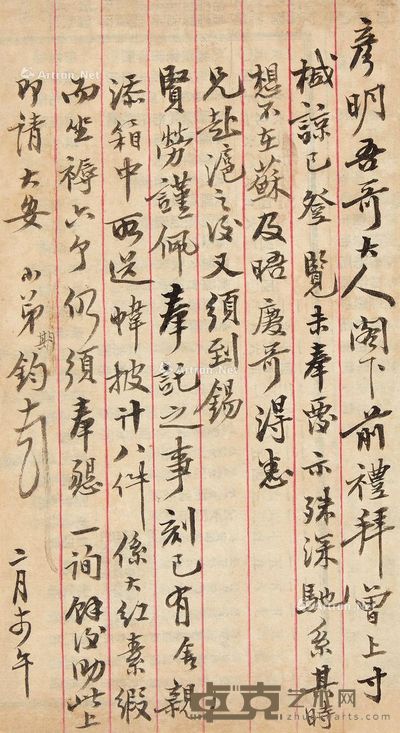 彥明吾哥大人閣下前禮拜曾上寸
椷諒已登覽未奉覆示殊深馳系其時
想不在蘇及晤慶哥得悉
兄赴滬之後又須到錫
賢勞謹佩奉託之事刻已有舍親
添箱中所送幃披計八件係大紅素緞
而坐褥六个仍須奉懇一詢餘後此上
即請大安 小弟期鈞
二月午
Artron.Net
卓克艺术网
zhuokearts.com